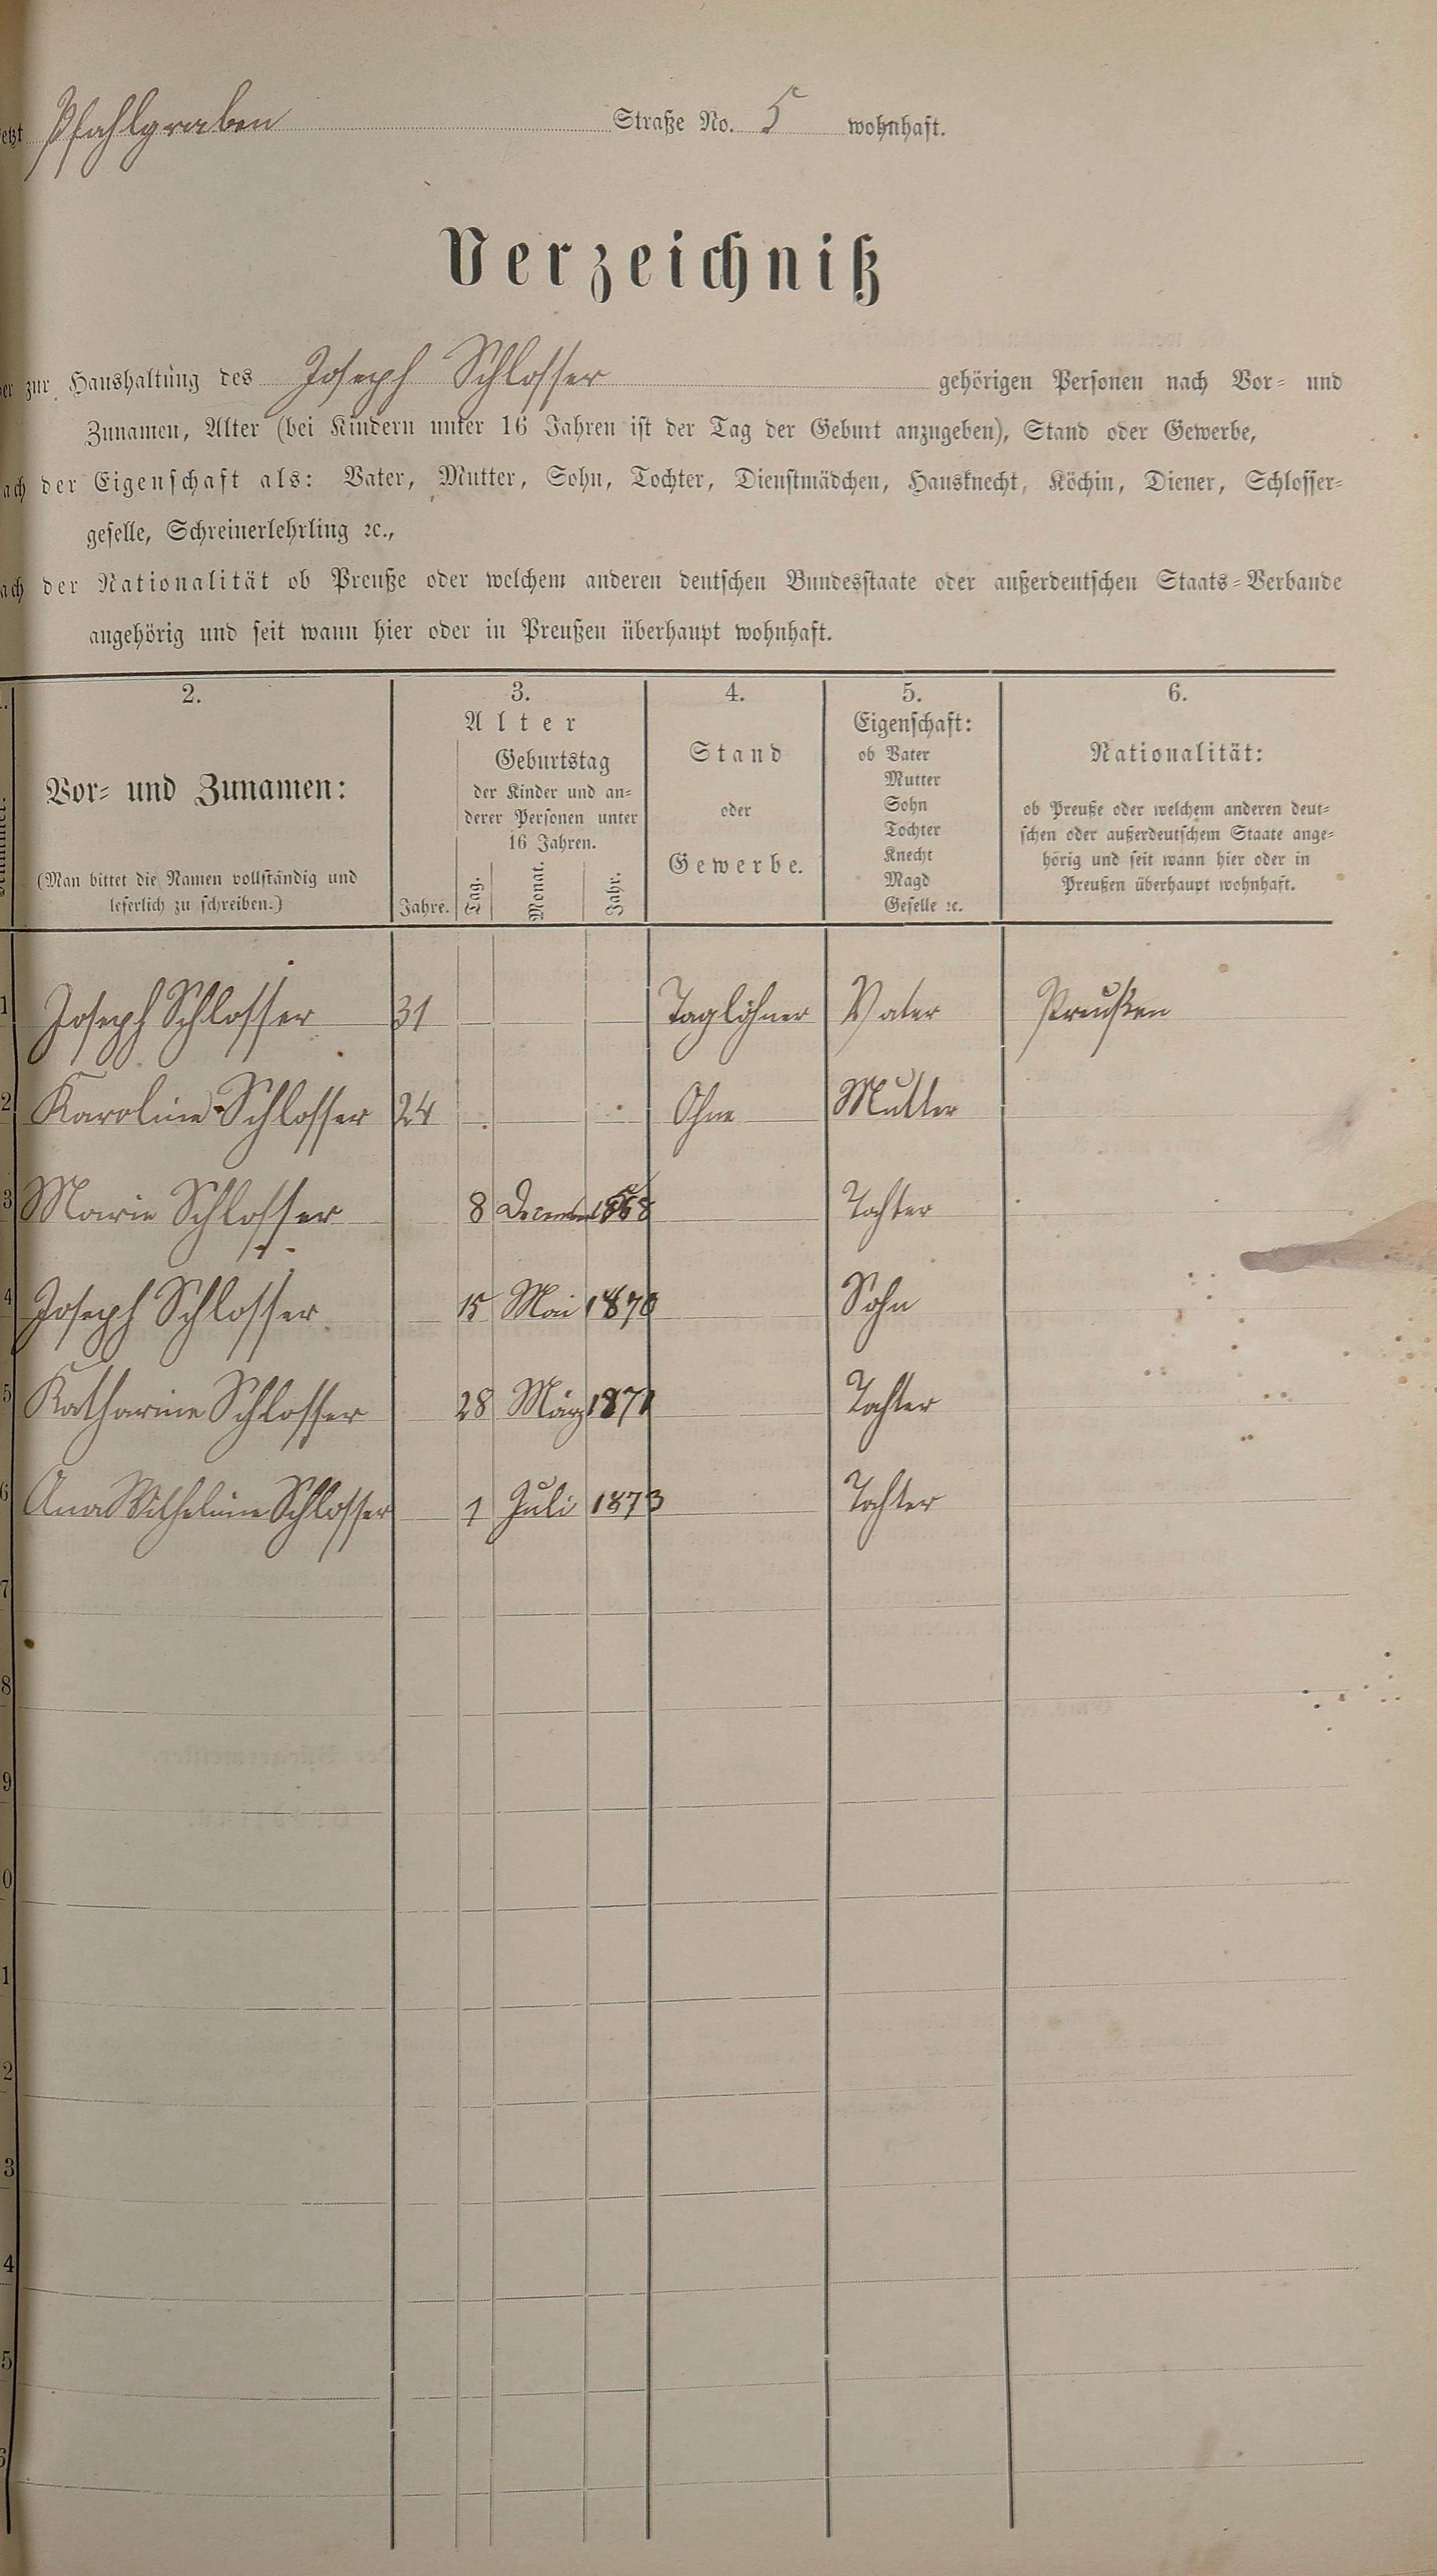 etzt Pfahlgraben Straße No. 5 wohnhaft.
Verzeichniß
der zur Haushaltung des Joseph Schlosser gehörigen Personen nach Vor- und
Zunamen, Alter (bei Kindern unter 16 Jahren ist der Tag der Geburt anzugeben), Stand oder Gewerbe,
ach der Eigenschaft als: Vater, Mutter, Sohn, Tochter, Dienstmädchen, Hausknecht, Köchin, Diener, Schlosser-
geselle, Schreinerlehrling ꝛc.,
ach der Nationalität ob Preuße oder welchem anderen deutschen Bundesstaate oder außerdeutschen Staats-Verbande
angehörig und seit wann hier oder in Preußen überhaupt wohnhaft.
2.
Vor- und Zunamen:
(Man bittet die Namen vollständig und
leserlich zu schreiben.)
3.
Alter
Geburtstag
der Kinder und an-
derer Personen unter
16 Jahren.
Jahre. Tag. Monat. Jahr.
4.
Stand
oder
Gewerbe.
5.
Eigenschaft:
ob Vater
Mutter
Sohn
Tochter
Knecht
Magd
Geselle ꝛc.
6.
Nationalität:
ob Preuße oder welchem anderen deut-
schen oder außerdeutschem Staate ange-
hörig und seit wann hier oder in
Preußen überhaupt wohnhaft.
1 Joseph Schlosser 31 Taglöhner Vater Preußen
2 Karoline Schlosser 24 Ohne Mutter
3 Marie Schlosser 8 December 1868 Tochter
4 Joseph Schlosser 15 Mai 1870 Sohn
5 Katharine Schlosser 28 März 1871 Tochter
6 Anna Wilhelmine Schlosser 1 Juli 1873 Tochter
7
8
9
0
1
2
3
4
5
6